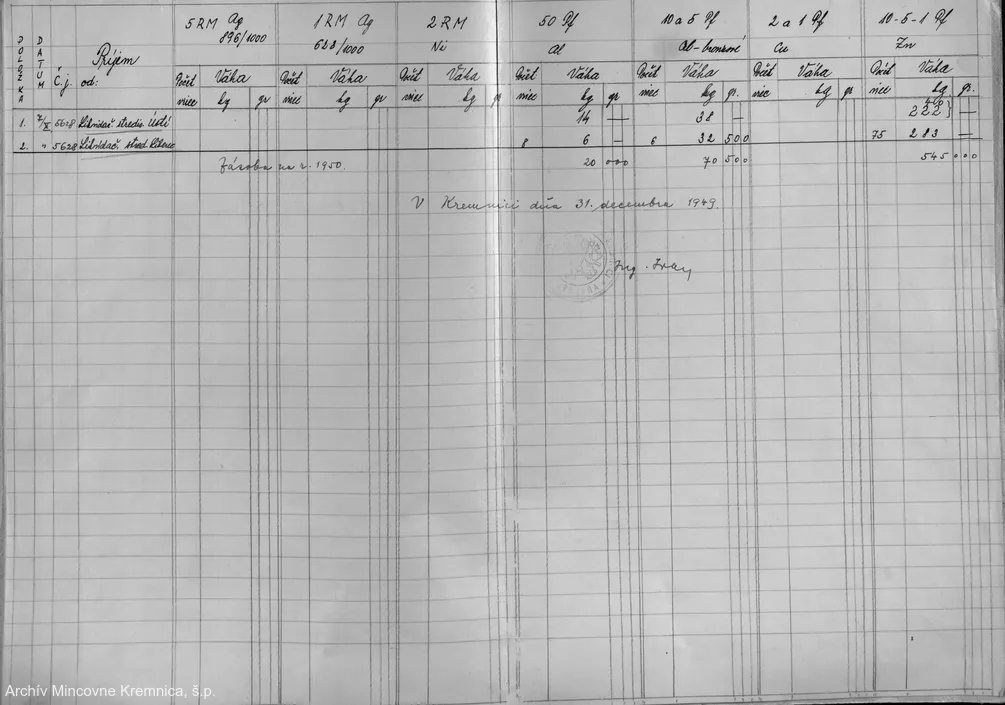 5 RM Ag 1 RM Ag 2 RM 50 Pf 10 a 5 Pf 2 a 1 Pf 10-5-1 Pf
896/1000 /1000 Ni Al Al-bronzové Cu Zn
POLOŽKA DATUM Č. j. Príjem od:
Počet Váha Počet Váha Počet Váha Váha Počet Váha Počet Váha Počet Váha
miec kg gr miec kg gr miec kg gr miec kg gr miec kg gr. miec kg gr miec kg gr.
1. 5628 Likvidač. stredis. Ústí 14 — 38 — 222 } —
2. " 5628 Likvidač. stred. 8 6 — 6 32 500 75 283 —
Zásoba na r. 1950. 20 000 70 500 545 000
V Kremnici dňa 31. decembra 1949.
Archív Mincovne Kremnica, š.p.